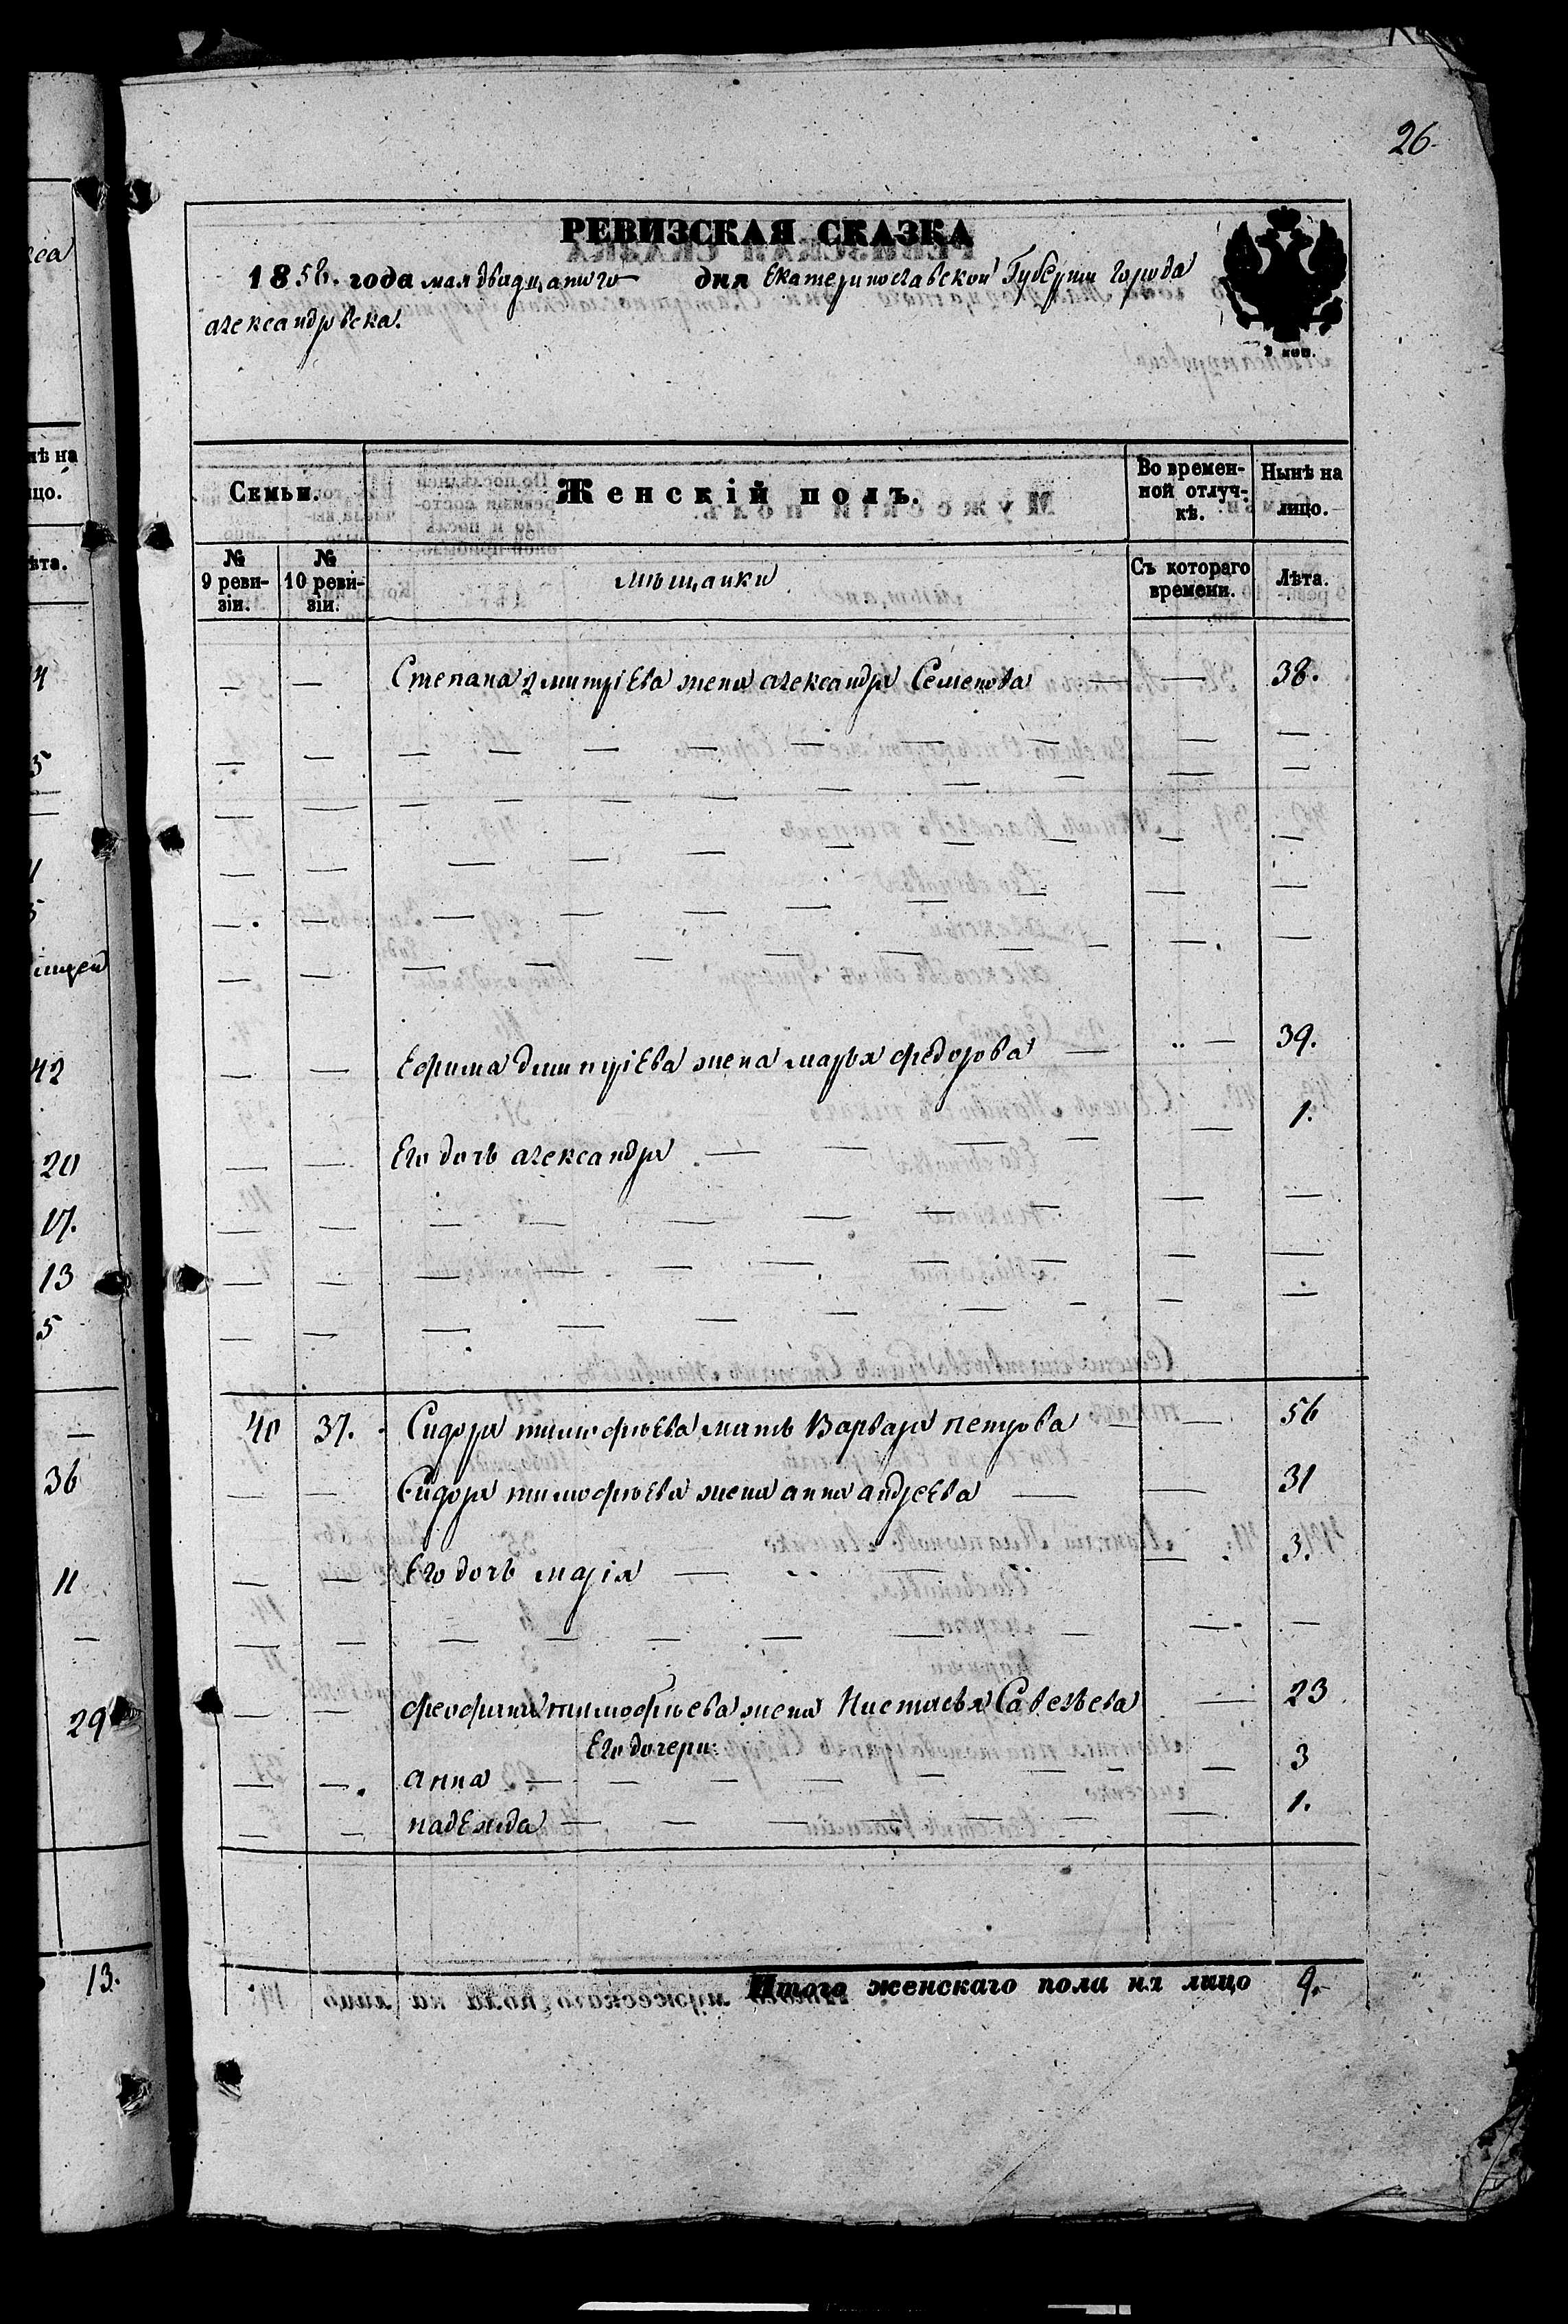 26.
РЕВИЗСКАЯ СКАЗКА
1858. года мая двадцатого дня Екатеринославской Губерніи города
александровска.
2 коп.
Семьи.
Женскій полъ.
Во времен-
ной отлуч-
кѣ.
Нынѣ на
лицо.
№
9 реви-
зіи.
№
10 реви-
зіи.
мѣщанки
Съ котораго
времени.
Лѣта.
— — Степана дмитріева жена александра Семенова — — 38.
— — Ефима дмитріева жена марья федорова — — 39.
— — Его дочь александра — — 1.
40 37. Сидора тимофѣева мать Варвара петрова — — 56
— — Сидора тимофѣева жена анна андреева — — 31
— — Его дочь марія — — 3.
— — феофана тимофѣева жена Настасья Савельева — 23
Его дочери:
— — анна — — 3
— — надежда — — 1.
Итого женскаго пола на лицо 9.